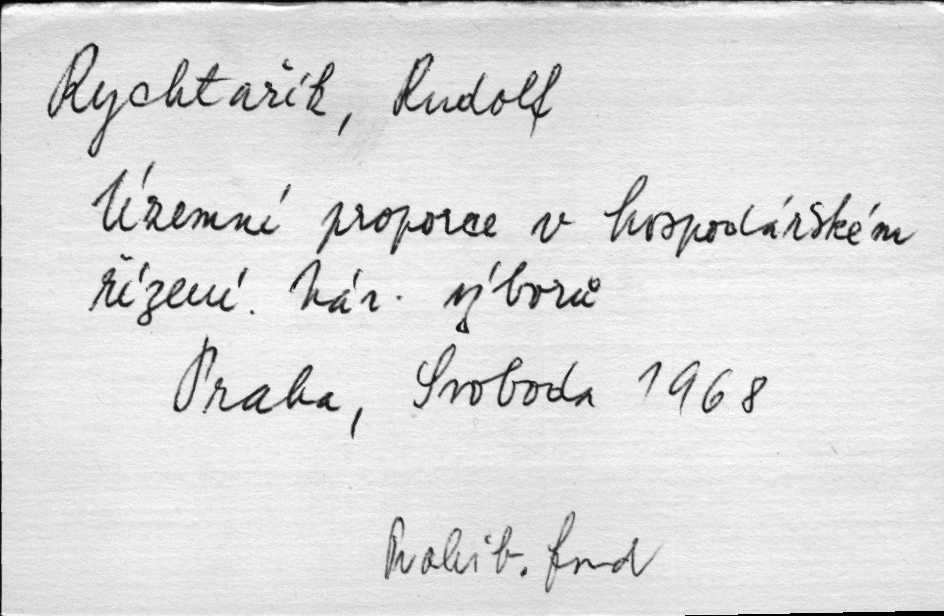 Rychtařík, Rudolf
Územní proporce v hospodářském
řízení. nár. výborů
Praha, Svoboda 1968
Prohib. fond